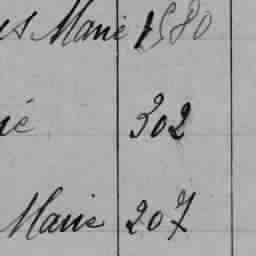 Marie 1580
302
Marie 207